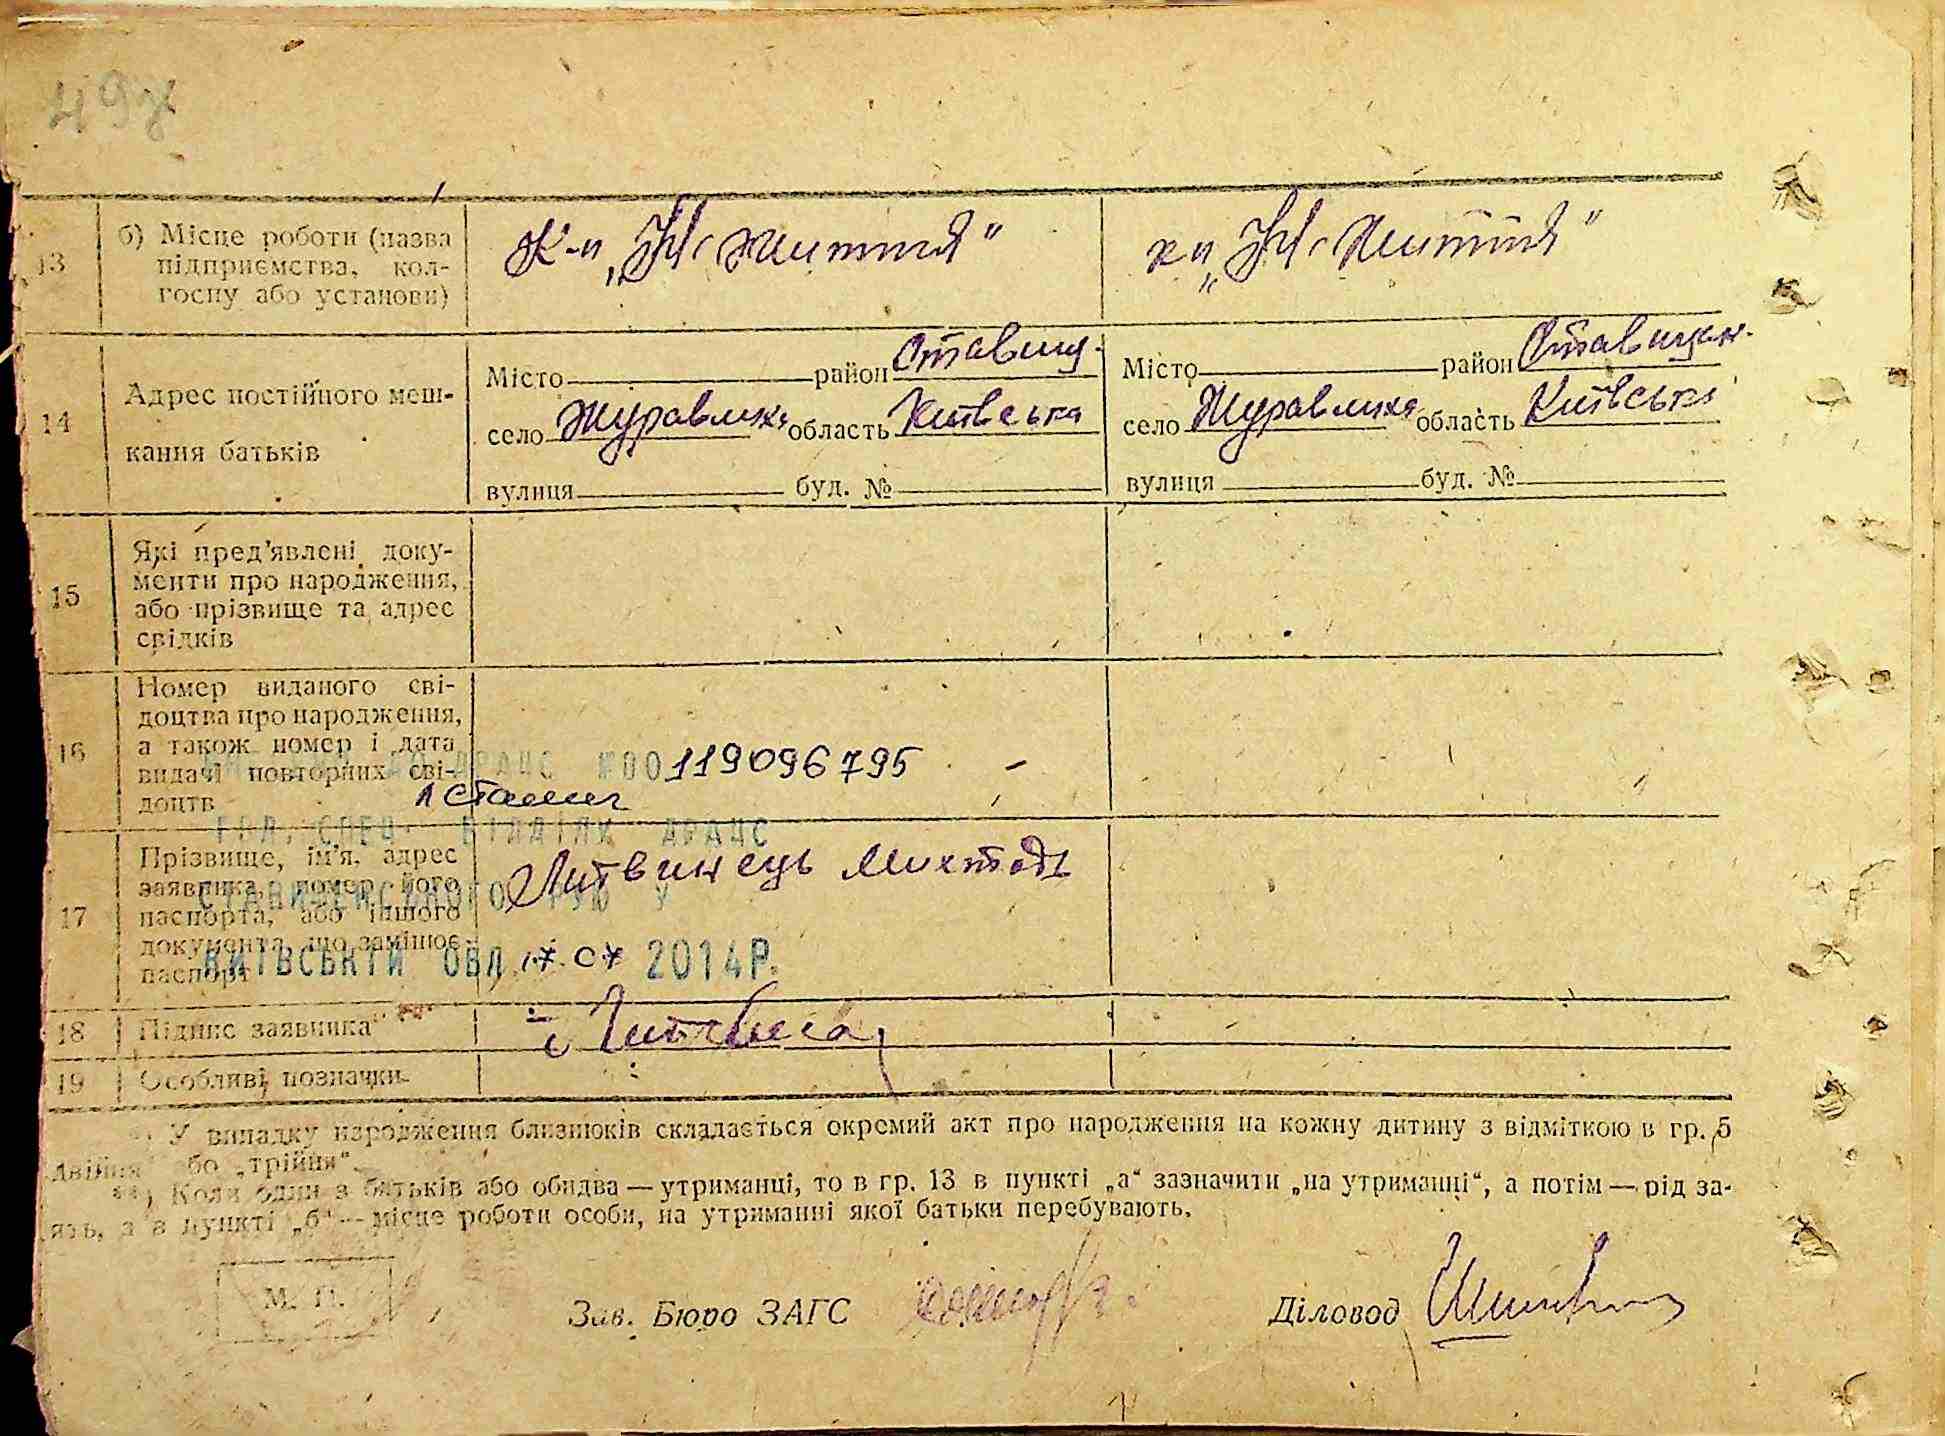 13
б) Місце роботи (назва
підприємства, кол-
госпу або установи)
К-п „Н. життя"
кп „Н. життя"
14
Адрес постійного меш-
кання батьків
Місто район Ставищ.
село Журавлиха область Київська
вулиця буд. №
Місто район Ставищан.
село Журавлиха область Київська
вулиця буд. №
15
Які пред'явлені доку-
менти про народження,
або прізвище та адрес
свідків
16
Номер виданого сві-
доцтва про народження,
а також номер і дата
видачі повторних сві-
доцтв
ДРАЦС №00119096795
ГОЛ. СПЕЦ. ВІДДІЛУ ДРАЦС
17
Прізвище, ім'я, адрес
заявника, номер його
паспорта, або іншого
документа, що замінює
паспорт
Литвинець
РУЮ У
КИЇВСЬКІЙ ОБЛ. 17.07 2014Р.
18
Підпис заявника
19
Особливі позначки
У випадку народження близнюків складається окремий акт про народження на кожну дитину з відміткою в гр. 5
„двійня" або „трійня".
**) Коли один з батьків або обидва — утриманці, то в гр. 13 в пункті „а" зазначити „на утриманці", а потім — рід за-
нять, а в пункті „б" — місце роботи особи, на утриманні якої батьки перебувають.
М. П.
Зав. Бюро ЗАГС
Діловод